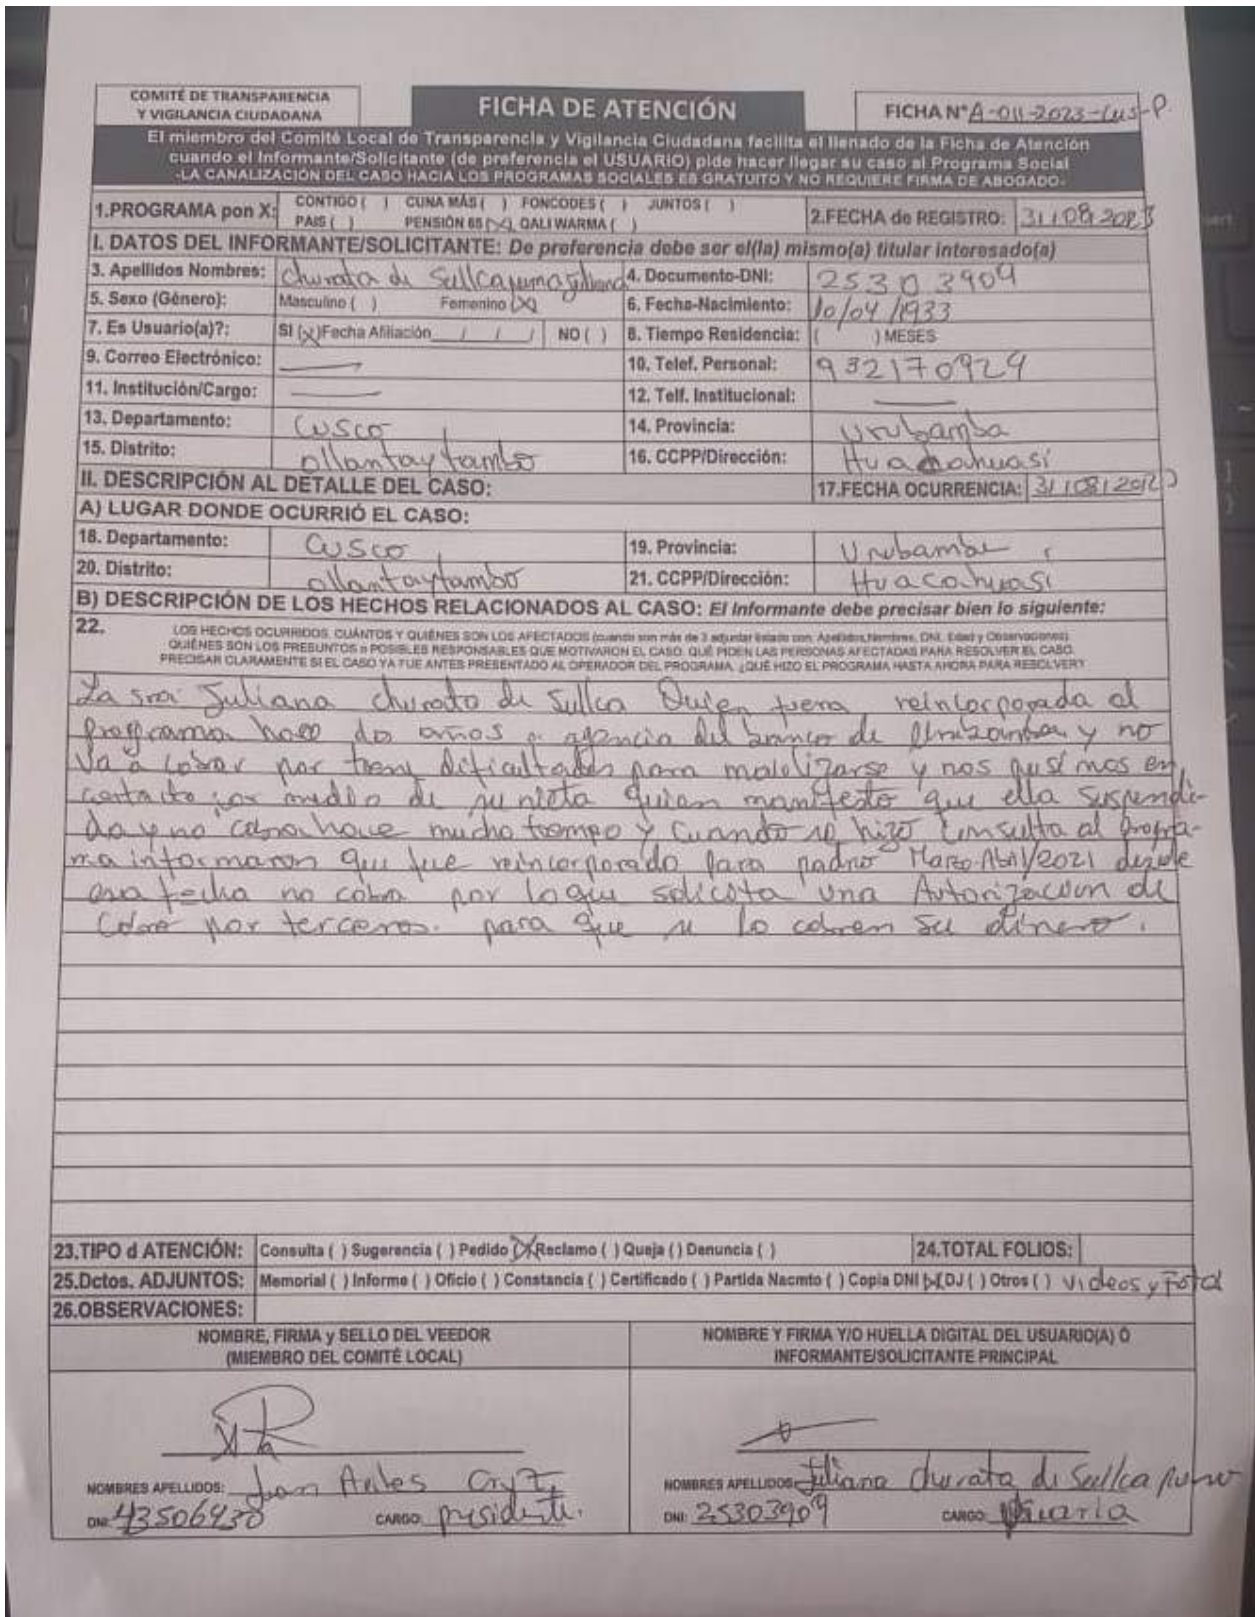 COMITÉ DE TRANSPARENCIA
Y VIGILANCIA CIUDADANA
FICHA DE ATENCIÓN
FICHA N° A-011-2023-Cus-P.
El miembro del Comité Local de Transparencia y Vigilancia Ciudadana facilita el llenado de la Ficha de Atención
cuando el Informante/Solicitante (de preferencia el USUARIO) pide hacer llegar su caso al Programa Social
-LA CANALIZACIÓN DEL CASO HACIA LOS PROGRAMAS SOCIALES ES GRATUITO Y NO REQUIERE FIRMA DE ABOGADO-
1.PROGRAMA pon X: CONTIGO ( ) CUNA MÁS ( ) FONCODES ( ) JUNTOS ( )
PAIS ( ) PENSIÓN 65 (X) QALI WARMA ( )
2.FECHA de REGISTRO: 31/08/2023
I. DATOS DEL INFORMANTE/SOLICITANTE: De preferencia debe ser el(la) mismo(a) titular interesado(a)
3. Apellidos Nombres: Churata de Sullcapuma Juliana 4. Documento-DNI: 25303909
5. Sexo (Género): Masculino ( ) Femenino (X) 6. Fecha-Nacimiento: 10/04/1933
7. Es Usuario(a)?: SI (X) Fecha Afiliación / / NO ( ) 8. Tiempo Residencia: ( ) MESES
9. Correo Electrónico: — 10. Telef. Personal: 932170929
11. Institución/Cargo: — 12. Telf. Institucional: —
13. Departamento: Cusco 14. Provincia: Urubamba
15. Distrito: ollantaytambo 16. CCPP/Dirección: Huacahuasi
II. DESCRIPCIÓN AL DETALLE DEL CASO: 17.FECHA OCURRENCIA: 31/08/202
A) LUGAR DONDE OCURRIÓ EL CASO:
18. Departamento: Cusco 19. Provincia: Urubamba
20. Distrito: ollantaytambo 21. CCPP/Dirección: Huacahuasi
B) DESCRIPCIÓN DE LOS HECHOS RELACIONADOS AL CASO: El Informante debe precisar bien lo siguiente:
22. LOS HECHOS OCURRIDOS. CUÁNTOS Y QUIÉNES SON LOS AFECTADOS (cuando son más de 3 adjuntar listado con: Apellidos, Nombres, DNI, Edad y Observaciones)
QUIÉNES SON LOS PRESUNTOS o POSIBLES RESPONSABLES QUE MOTIVARON EL CASO. QUÉ PIDEN LAS PERSONAS AFECTADAS PARA RESOLVER EL CASO.
PRECISAR CLARAMENTE SI EL CASO YA FUE ANTES PRESENTADO AL OPERADOR DEL PROGRAMA. ¿QUÉ HIZO EL PROGRAMA HASTA AHORA PARA RESOLVER?
La sra Juliana churata de Sullca Quien fuera reincorporada al
programa hace dos años agencia del banco de Urubamba y no
va a cobrar por tener dificultades para y nos pusimos en
contacto por medio de su nieta quien manifesto que ella suspendi-
da y no cobra hace mucho tiempo y cuando se hizo consulta al progra-
ma informaron que fue reincorporado para padrón Marzo-Abril/2021 desde
esa fecha no cobra por lo que solicita una Autorizacion de
Cobro por terceros. para que se lo cobren su dinero.
23.TIPO d ATENCIÓN: Consulta ( ) Sugerencia ( ) Pedido (X) Reclamo ( ) Queja ( ) Denuncia ( ) 24.TOTAL FOLIOS:
25.Dctos. ADJUNTOS: Memorial ( ) Informe ( ) Oficio ( ) Constancia ( ) Certificado ( ) Partida Nacmto ( ) Copia DNI (X) DJ ( ) Otros ( ) Videos y
26.OBSERVACIONES:
NOMBRE, FIRMA y SELLO DEL VEEDOR
(MIEMBRO DEL COMITÉ LOCAL)
NOMBRE Y FIRMA Y/O HUELLA DIGITAL DEL USUARIO(A) O
INFORMANTE/SOLICITANTE PRINCIPAL
NOMBRES APELLIDOS: Juan
DNI: 43506438 CARGO: presidente.
NOMBRES APELLIDOS: Juliana churata de Sullca puma
DNI: 25303909 CARGO: Usuaria